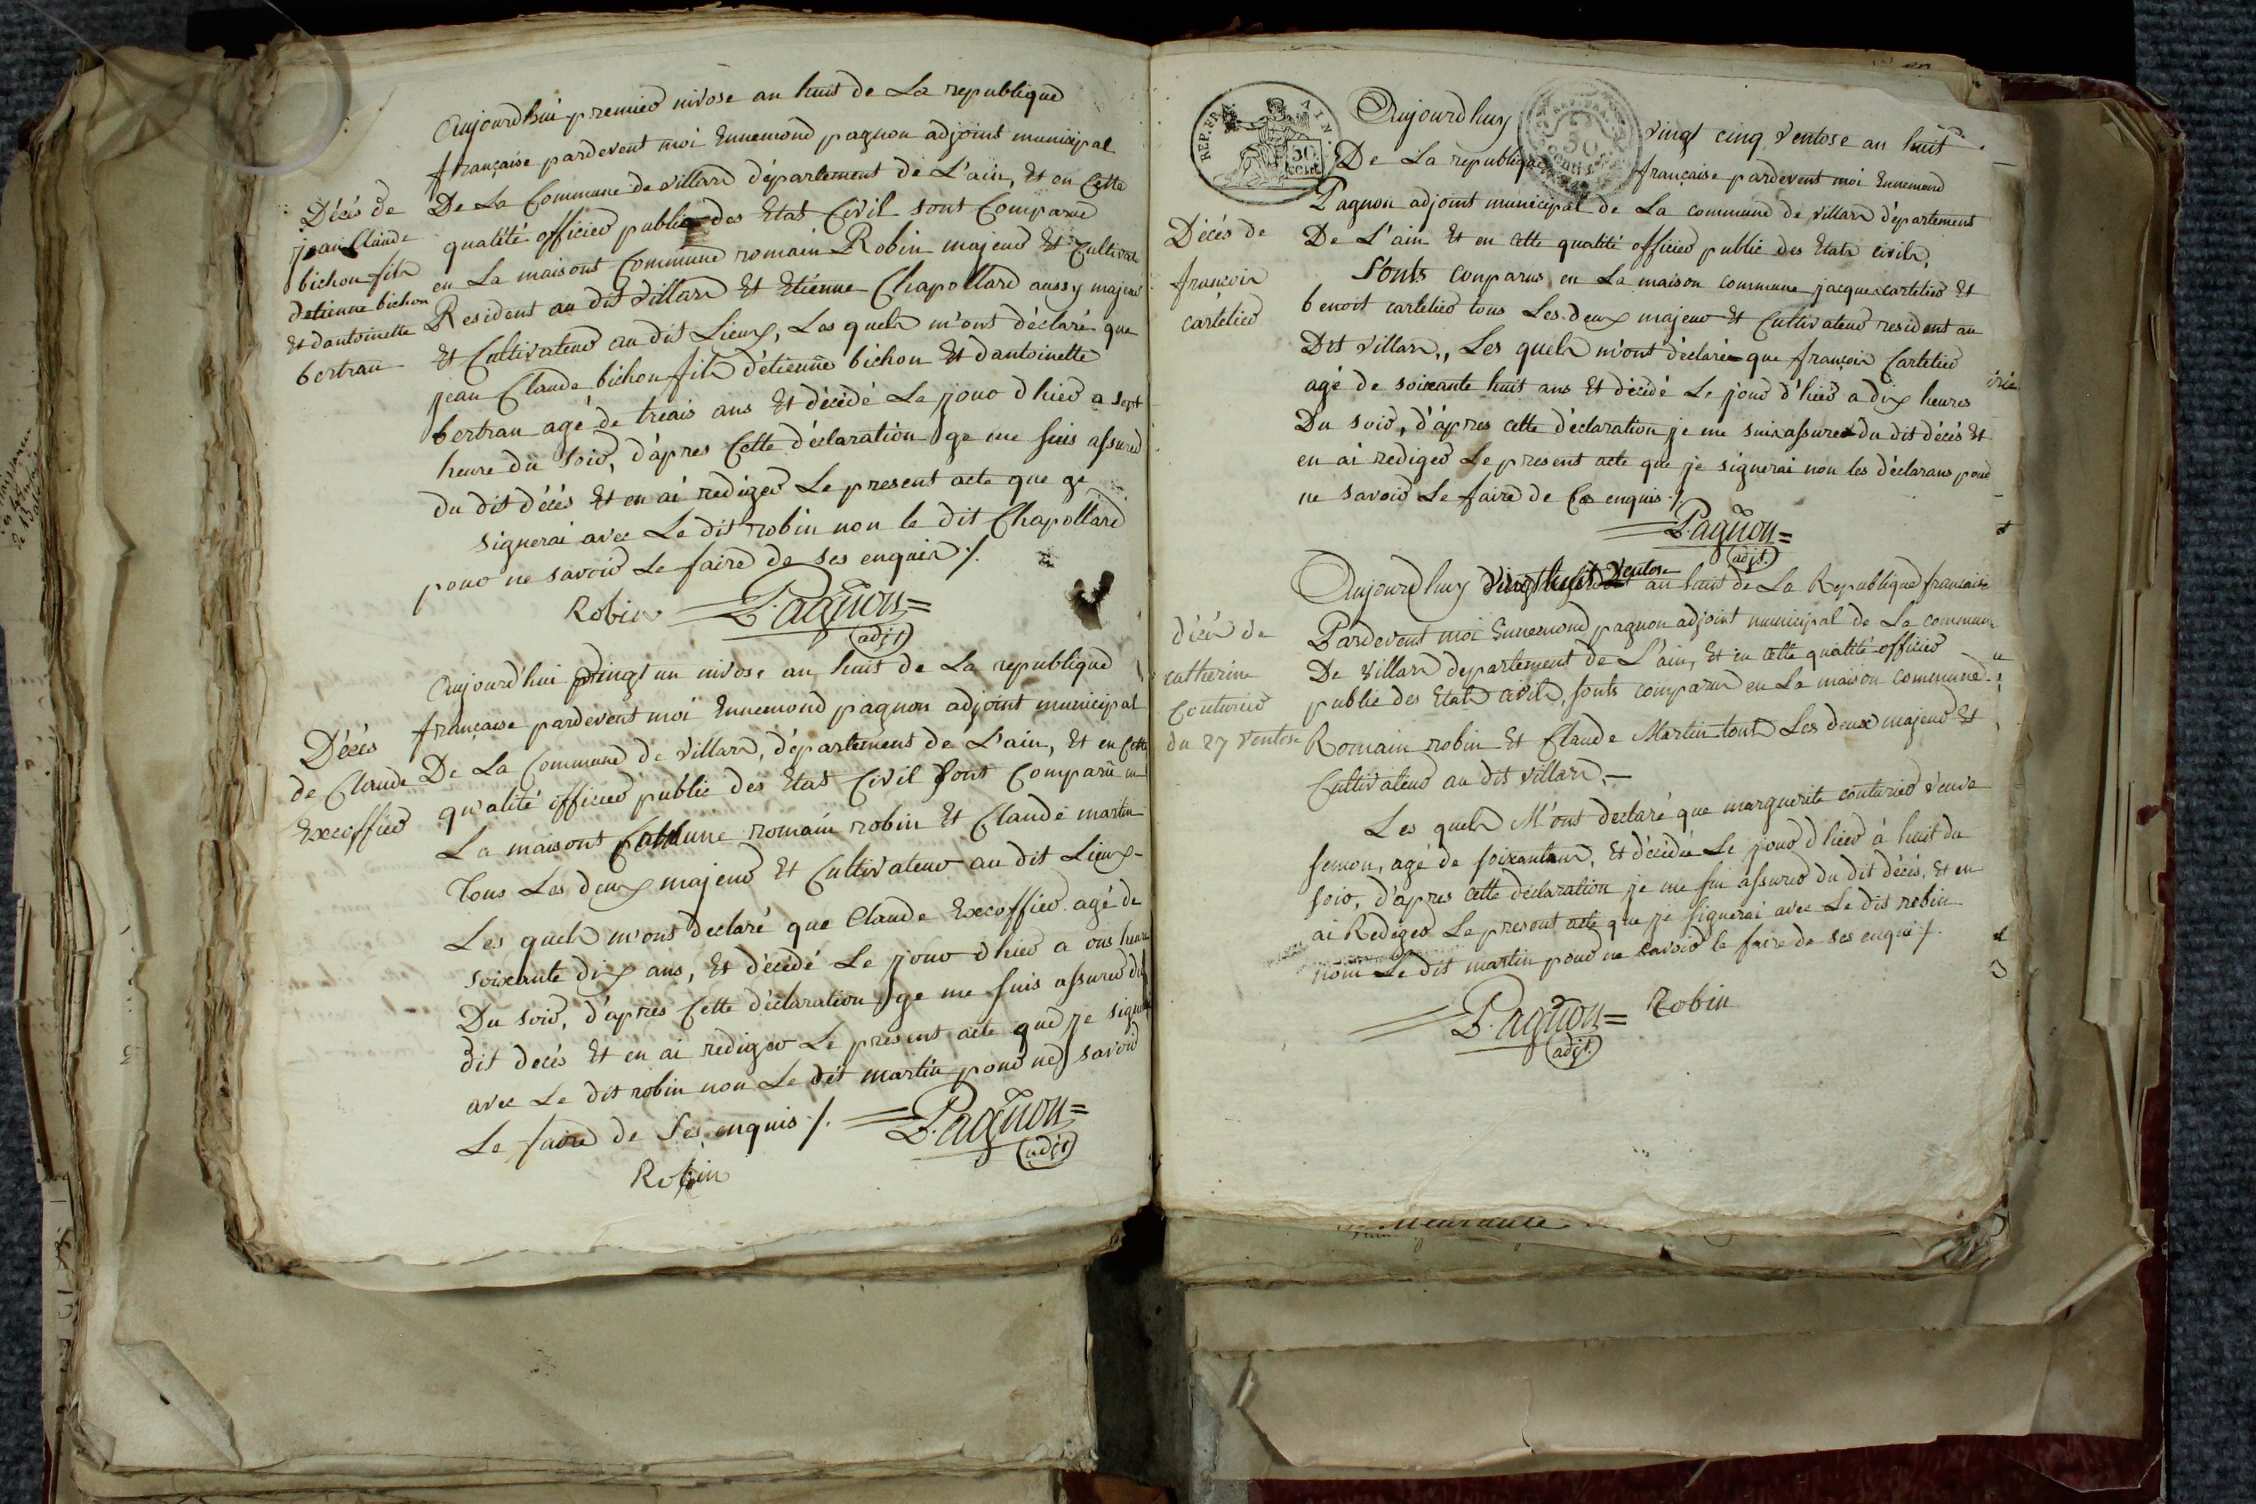 Aujourd'hui premier nivose an huit de La republique
française pardevent moi Ennemond pagnon adjoint municipal
De La Commune de villard département de L'ain, Et en Cette
qualité officier public des Etat Civil sont Comparue
en La maisont Commune romain Robin majeur Et Cultivat
Resident au dit villard Et Etiénne Chapollard aussy majeur
Et Cultivateur au dit Lieux, Les quels m'ont déclaré que
jean Claude bichon fils d'étienne bichon Et dantoinette
bertran agé de treais ans Et décédé Le jour d hier a sept
heure du soir, d'âpres Cette déclaration ge me suis assuré
du dit décés Et en ai rediger Le present acte que ge
signerai avec Le dit robin non le dit Chapollard
pour ne savoir Le faire de ses enquis ./.
Décés de
jean Claude
bichon fils
detienne bichon
Et dantoinette
bertran
Robin = Pagnon =
adjt
Aujourd'hui vingt un nivose an huit de La republique
française pardevent moi Ennemond pagnon adjoint municipal
De La Commune de villard, département de L'ain, Et en Cette
qu'alité officier public des Etat Civil sont Comparû en
La maisont Commune romain robin Et Claude martin
Tous Les deux majeur Et Cultivateur au dit Lieux
Les quels m'ont declaré que Claude Excoffier agé de
soixante dix ans, Et décédé Le jour d hier a ons heure
Du soir, d'aprés Cette déclaration, ge me suis assurer du
dit decés Et en ai rediger Le present acte que je signe
avec Le dit robin non Le dit martin pour ne savoir
Le faire de Ses enquis ./. = Pagnon =
adjt
Robin
Décés
de Claude
Excoffier
REP. FRA. AIN
50
CENT.
Aujourd huy vingt cinq ventose an huit
De La republique française pardevent moi Ennemond
Pagnon adjoint municipal de La commune de villard département
De L'ain Et en cette qualité officier public des Etats civils,
sonts conparus en La maison commune jacque cartelier Et
benoit cartelier tous Les deux majeur Et Cultivateur resident au
Dit villard, Les quels m'ont déclaré que françois Cartelier
agé de soixante huit ans Et décédé Le jour d'hier a dix heures
Du soir, d'ápres cette déclaration je me suis assurer du dit décés Et
en ai rediger Le present acte que je signerai non les déclarans pour
ne savoir Le faire de Ce enquis ./.
Décés de
françois
cartelier
= Pagnon =
adjt.
Aujourd huy vingt huit ventose an huit de La Republique francaise
Pardevent moi Ennemond pagnon adjoint municipal de La commune
De villard departement de L'ain, Et en cette qualité officier
public des Etats civils, sonts comparus en La maison commune
Romain robin Et Claude Martin tout Les deux majeur Et
Cultivateur au dit villard. —
Les quels M'ont declaré que marguerite couturier veuve
semon, agé de soixante ans, Et décédée Le jour d hier à huit du
soir, d'ápres cette declaration je me sui assurer du dit décés, Et en
ai Rediger Le present acte que je signerai avec Le dit robin
nom Le dit martin pour ne savoir le faire de ses enqui ./.
décés de
catherine
Couturier
du 27 ventose
= Pagnon = Robin
adjt.